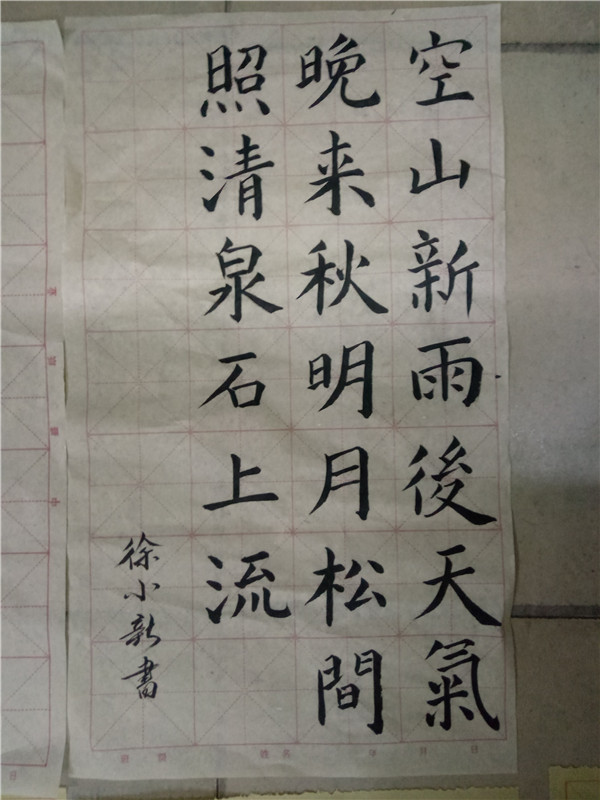 空山新雨後天氣
晚来秋明月松間
照清泉石上流
徐小新書